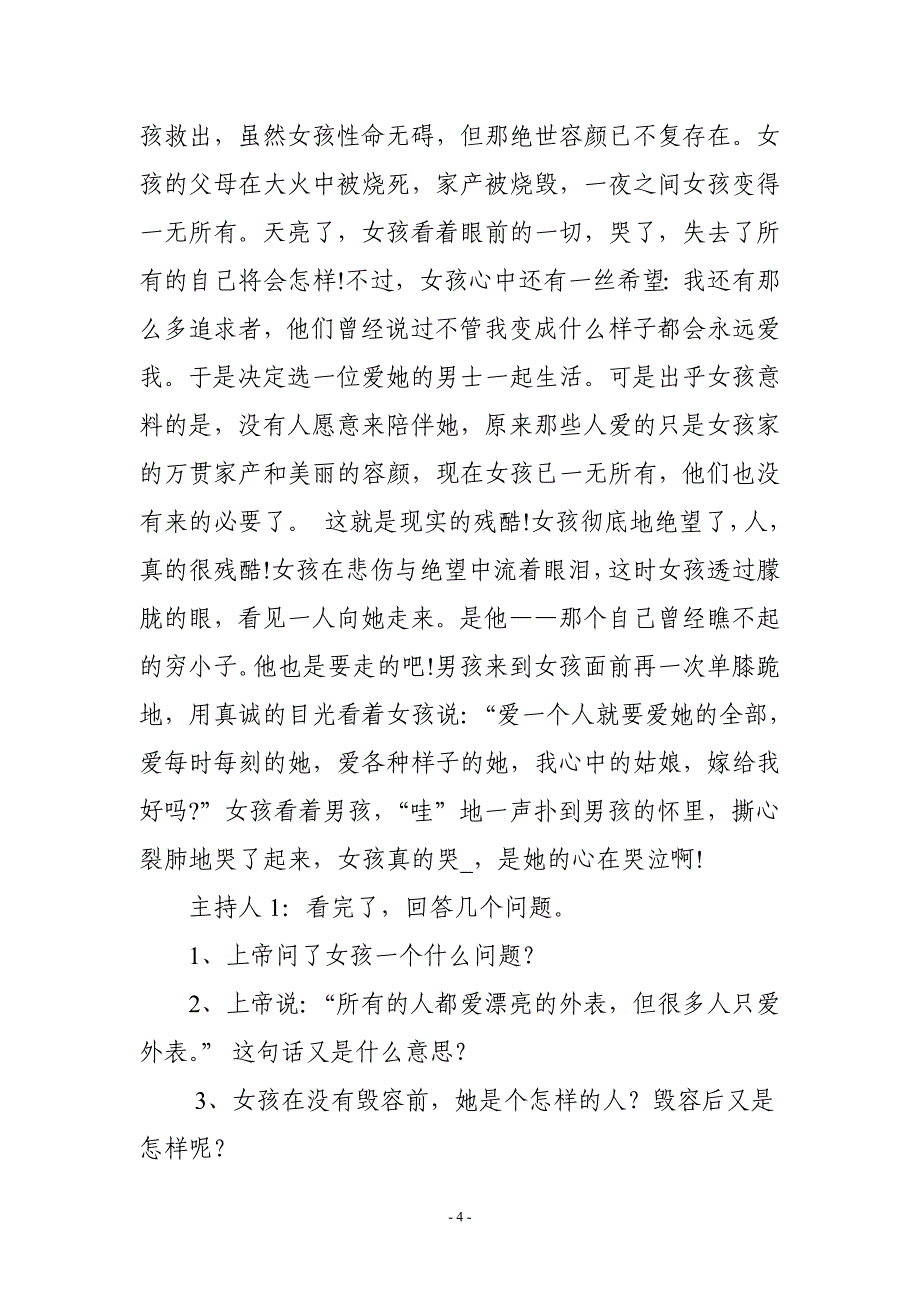 孩救出，虽然女孩性命无碍，但那绝世容颜已不复存在。女
孩的父母在大火中被烧死，家产被烧毁，一夜之间女孩变得
一无所有。天亮了，女孩看着眼前的一切，哭了，失去了所
有的自己将会怎样!不过，女孩心中还有一丝希望：我还有那
么多追求者，他们曾经说过不管我变成什么样子都会永远爱
我。于是决定选一位爱她的男士一起生活。可是出乎女孩意
料的是，没有人愿意来陪伴她，原来那些人爱的只是女孩家
的万贯家产和美丽的容颜，现在女孩已一无所有，他们也没
有来的必要了。 这就是现实的残酷!女孩彻底地绝望了，人，
真的很残酷!女孩在悲伤与绝望中流着眼泪，这时女孩透过朦
胧的眼，看见一人向她走来。是他——那个自己曾经瞧不起
的穷小子。他也是要走的吧!男孩来到女孩面前再一次单膝跪
地，用真诚的目光看着女孩说：“爱一个人就要爱她的全部，
爱每时每刻的她，爱各种样子的她，我心中的姑娘，嫁给我
好吗?”女孩看着男孩，“哇”地一声扑到男孩的怀里，撕心
裂肺地哭了起来，女孩真的哭_，是她的心在哭泣啊!
主持人1：看完了，回答几个问题。
1、上帝问了女孩一个什么问题？
2、上帝说：“所有的人都爱漂亮的外表，但很多人只爱
外表。” 这句话又是什么意思？
3、女孩在没有毁容前，她是个怎样的人？毁容后又是
怎样呢？
- 4 -